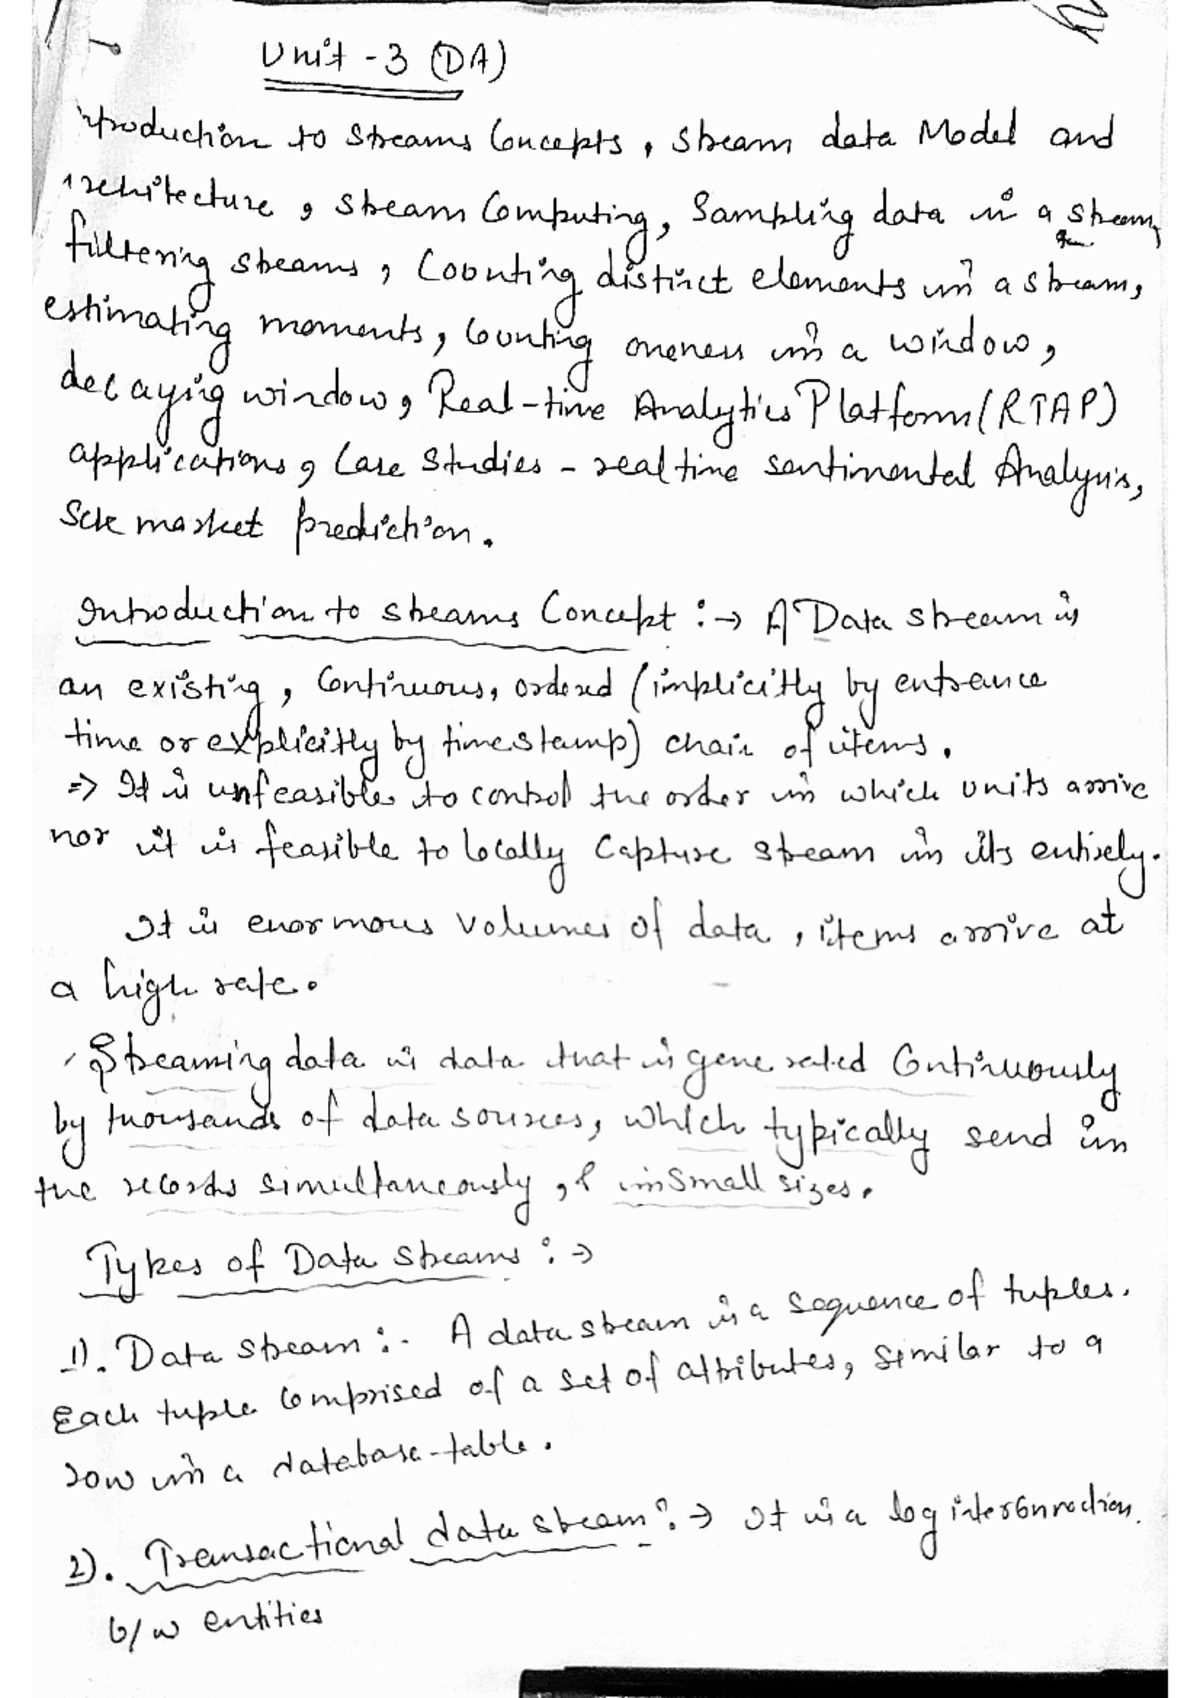 Unit - 3 (DA)
ntroduction to Streams Concepts, stream data Model and
rchitecture, stream Computing, Sampling data in a stream,
filtering streams, Counting distinct elements in a stream,
estimating moments, Counting oneness in a window,
decaying window, Real-time Analytics Platform (RTAP)
applications, Case Studies - real time sentimental Analysis,
Sck market prediction.
Introduction to streams Concept :→ A Data stream is
an existing, Continuous, ordered (implicitly by entrance
time or explicitly by timestamp) chain of items.
=> It is unfeasible to control the order in which units arrive
nor it is feasible to locally Capture stream in its entirely.
It is enormous volumes of data, items arrive at
a high rate.
Streaming data is data that is generated Continuously
by thousands of data sources, which typically send in
the records simultaneously, & in Small sizes.
Types of Data streams :→
1). Data stream :- A data stream is a sequence of tuples.
Each tuple comprised of a set of attributes, similar to a
row in a database-table.
2). Transactional data stream :→ It is a log interconnection
b/w entities